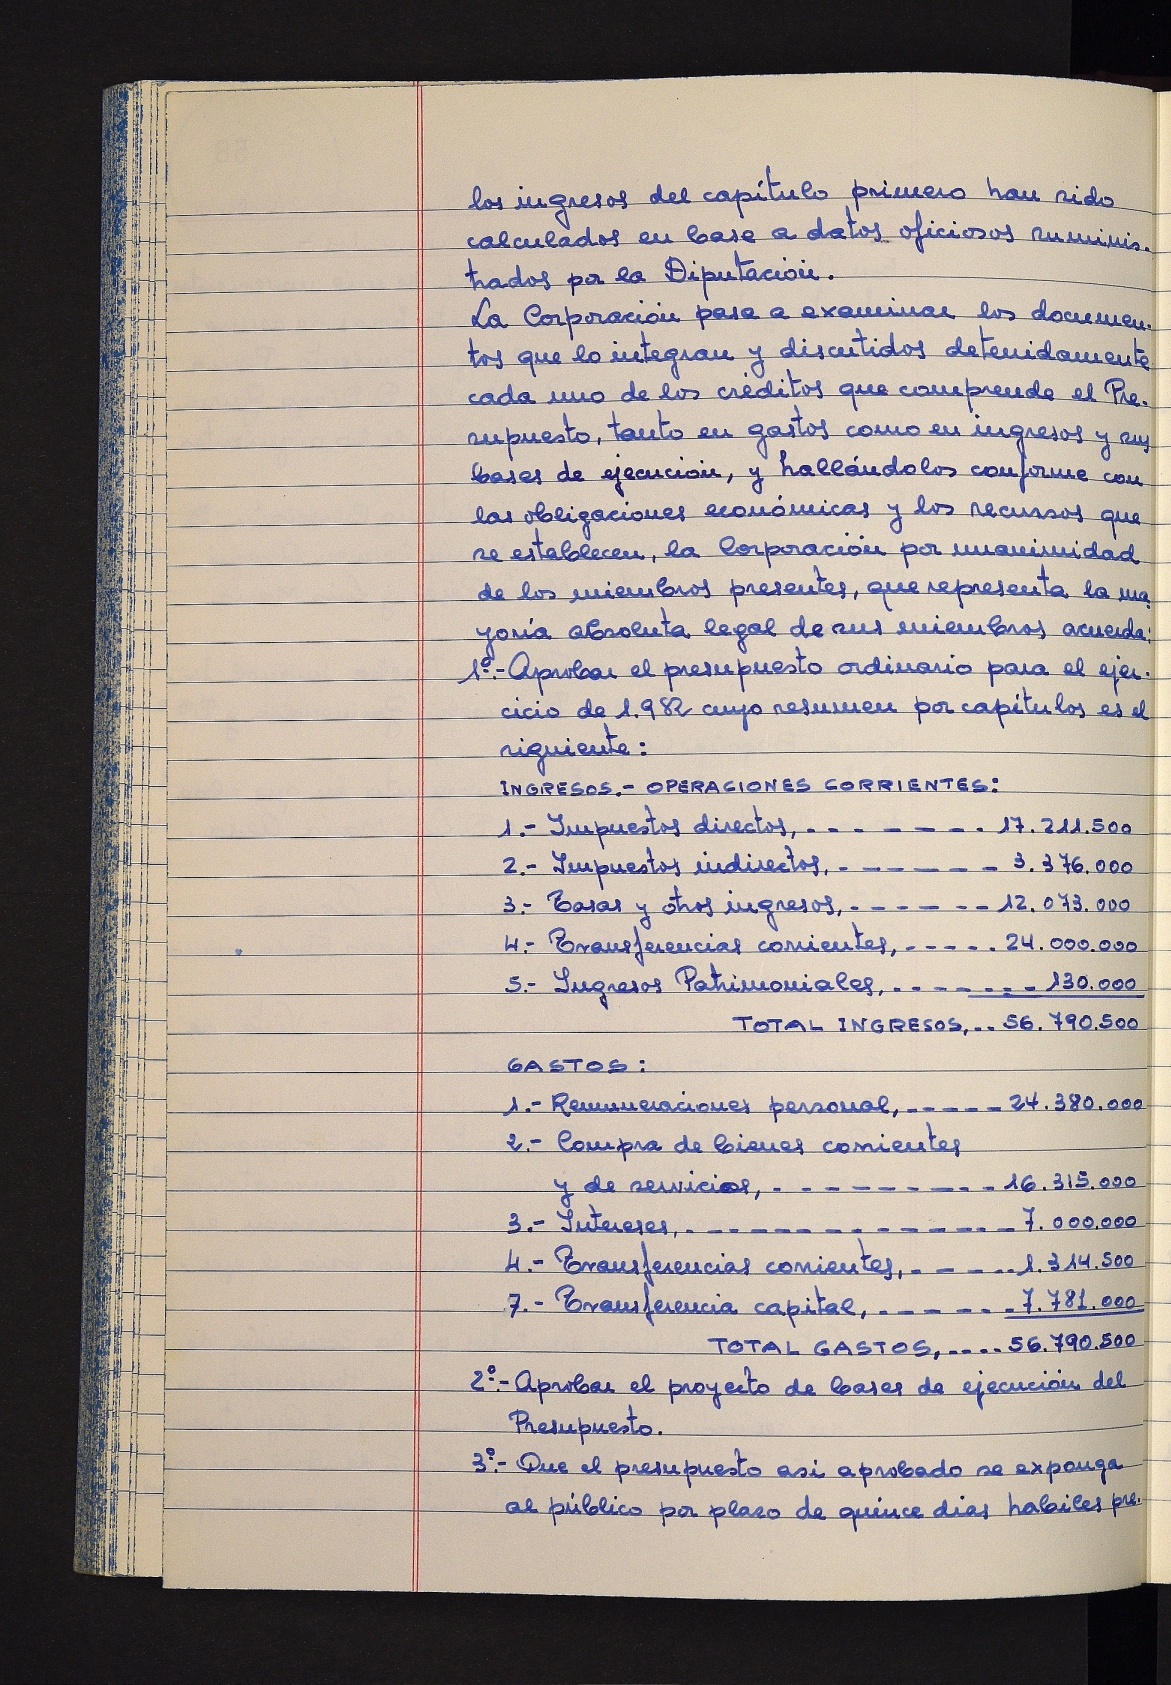 los ingresos del capítulo primero han sido
calculados en base a datos oficiosos suminis-
trados por la Diputación.
La Corporación pasa a examinar los documen-
tos que lo integran y discutidos detenidamente
cada uno de los créditos que comprende el Pre-
supuesto, tanto en gastos como en ingresos y sus
bases de ejecución, y hallándolos conforme con
las obligaciones económicas y los recursos que
se establecen, la Corporación por unanimidad
de los miembros presentes, que representa la ma
yoría absoluta legal de sus miembros acuerda:
1º.- Aprobar el presupuesto ordinario para el ejer-
cicio de 1.982 cuyo resumen por capítulos es el
siguiente:
INGRESOS.- OPERACIONES CORRIENTES:
1.- Impuestos directos,- - - - - - - 17.211.500
2.- Impuestos indirectos,- - - - - - 3.376.000
3.- Tasas y otros ingresos,- - - - - - 12.073.000
4.- Transferencias corrientes,- - - - - 24.000.000
5.- Ingresos Patrimoniales,- - - - - - - 130.000
TOTAL INGRESOS,-- 56.790.500
GASTOS:
1.- Remuneraciones personal,- - - - - 24.380.000
2.- Compra de bienes corrientes
y de servicios,- - - - - - - - - - 16.315.000
3.- Intereses,- - - - - - - - - - - - - - 7.000.000
4.- Transferencias corrientes,- - - - - 1.314.500
7.- Transferencia capital,- - - - - - - 7.781.000
TOTAL GASTOS,---- 56.790.500
2º.- Aprobar el proyecto de bases de ejecución del
Presupuesto.
3º.- Que el presupuesto asi aprobado se exponga
al público por plazo de quince dias habiles pre-